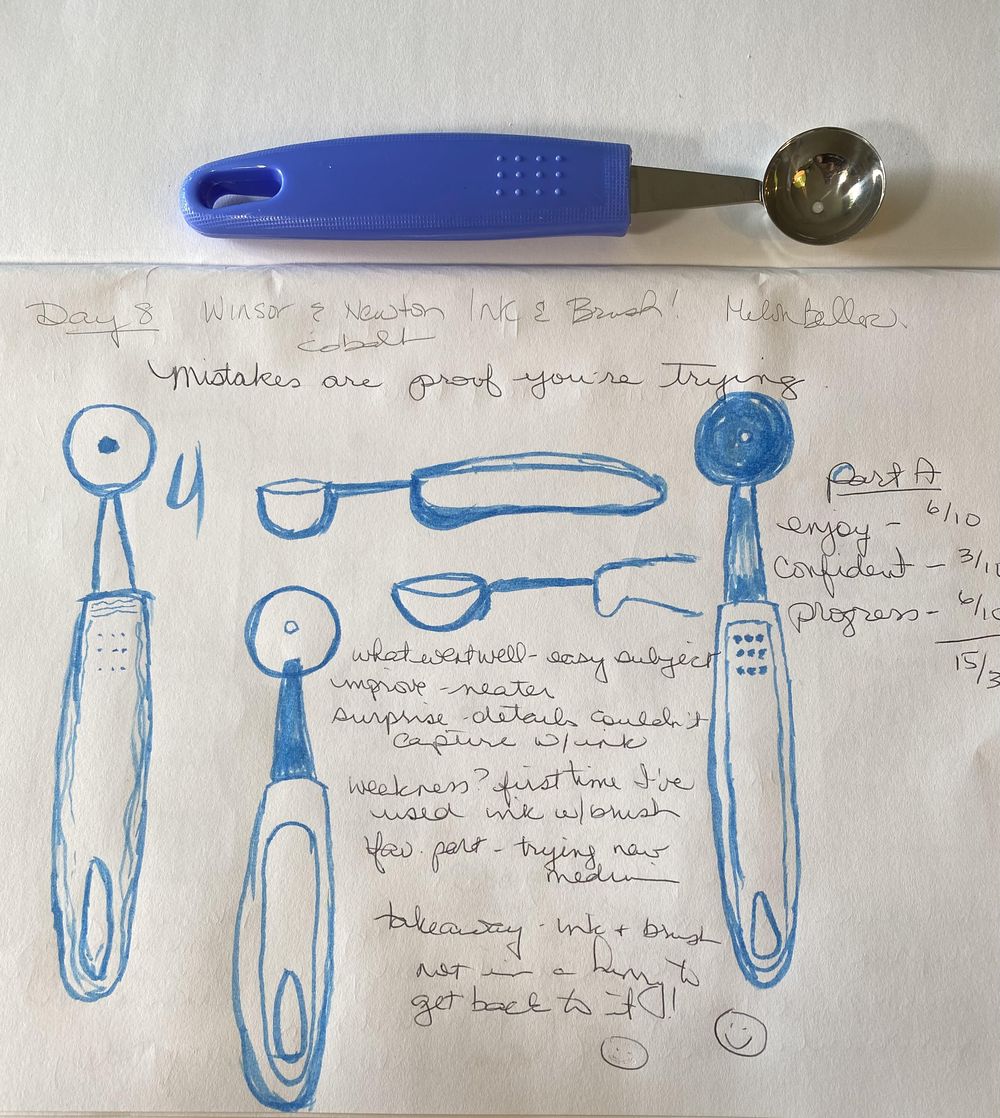 Day 8 Winsor & Newton Ink & Brush! Melon Baller.
cobalt
Mistakes are proof you're trying.
Part A
enjoy - 6/10
confident - 3/10
progress - 6/10
15/3
what went well - easy subject
improve - neater
surprise - details couldn't
capture w/ink
weekness? first time I've
used ink w/brush
fav. part - trying new
medium
takeaway - ink + brush
not in a hurry to
get back to it!